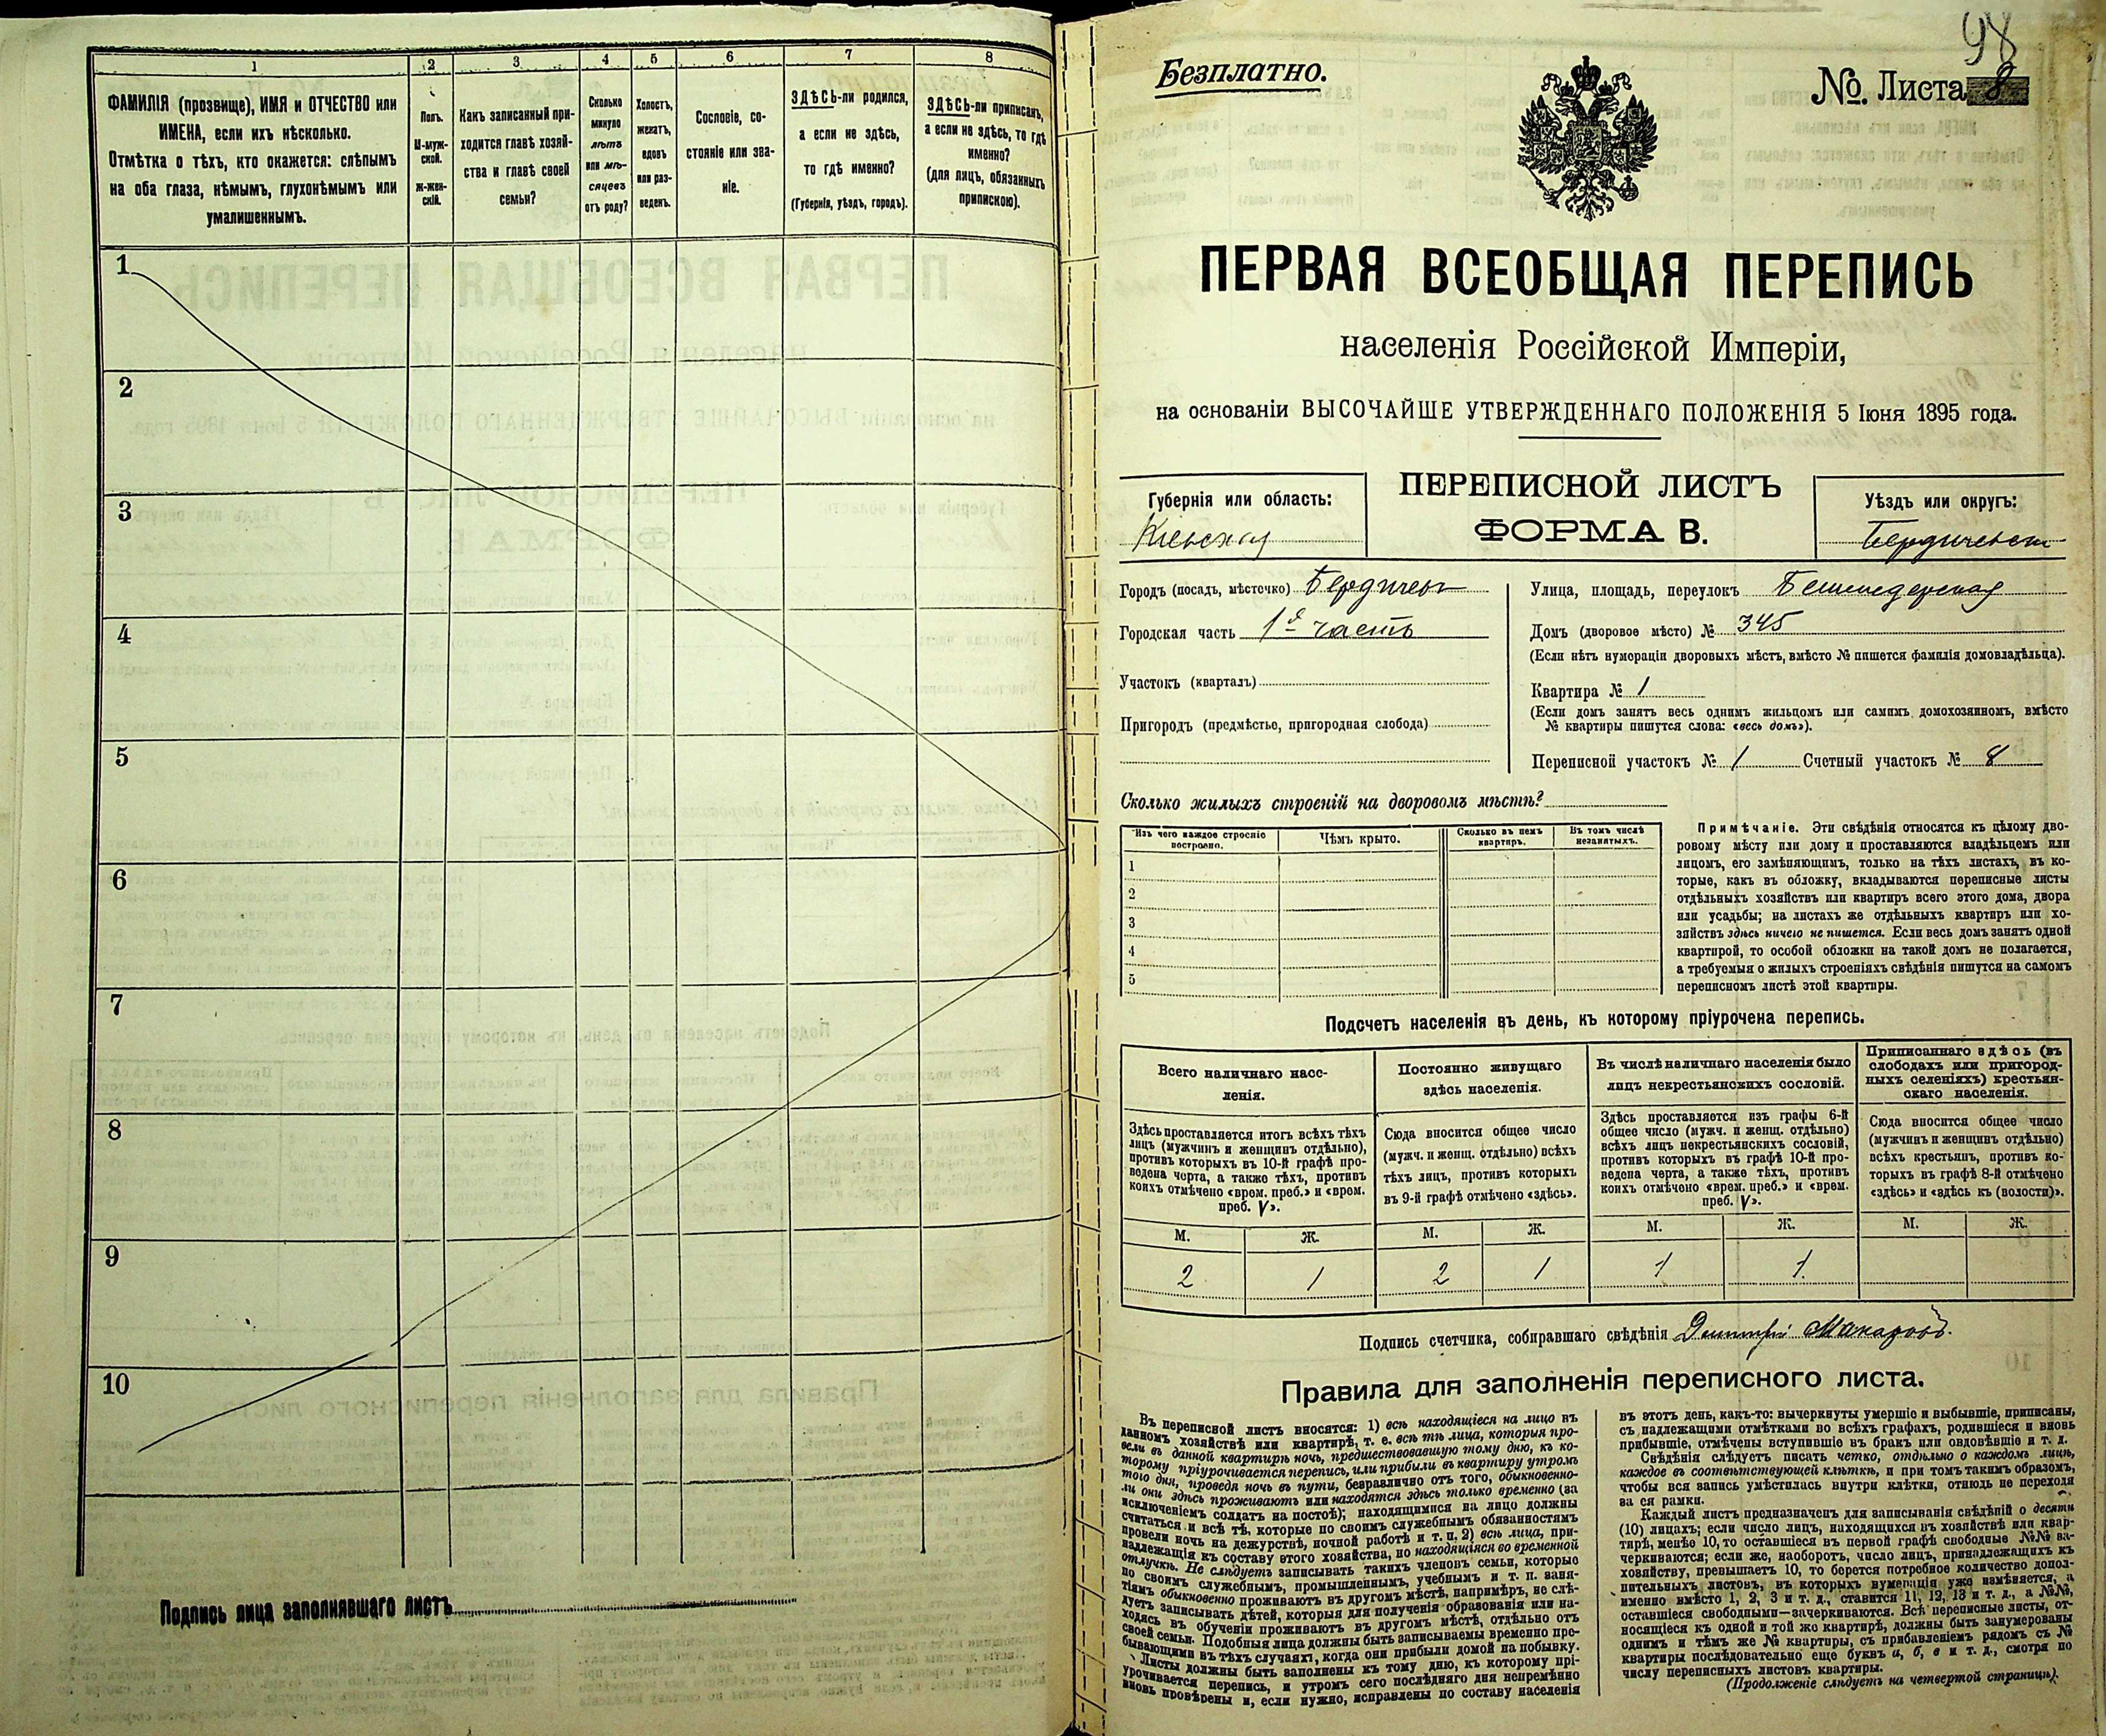 1 2 3 4 5 6 7 8
ФАМИЛІЯ (прозвище), ИМЯ и ОТЧЕСТВО или
ИМЕНА, если ихъ нѣсколько.
Отмѣтка о тѣхъ, кто окажется: слѣпымъ
на оба глаза, нѣмымъ, глухонѣмымъ или
умалишеннымъ.
Полъ.
М-муж-
ской.
Ж-жен-
скій.
Какъ записанный при-
ходится главѣ хозяй-
ства и главѣ своей
семьи?
Сколько
минуло
лѣтъ
или мѣ-
сяцевъ
отъ роду?
Холостъ,
женатъ,
вдовъ
или раз-
веденъ.
Сословіе, со-
стояніе или зва-
ніе.
ЗДѢСЬ-ли родился,
а если не здѣсь,
то гдѣ именно?
(Губернія, уѣздъ, городъ).
ЗДѢСЬ-ли приписанъ,
а если не здѣсь, то гдѣ
именно?
(для лицъ, обязанныхъ
припискою).
1
2
3
4
5
6
7
8
9
10
Подпись лица заполнявшаго листъ
98
Безплатно.
№. Листа 8
ПЕРВАЯ ВСЕОБЩАЯ ПЕРЕПИСЬ
населенія Россійской Имперіи,
на основаніи ВЫСОЧАЙШЕ УТВЕРЖДЕННАГО ПОЛОЖЕНІЯ 5 Іюня 1895 года.
Губернія или область:
Кіевская
ПЕРЕПИСНОЙ ЛИСТЪ
ФОРМА В.
Уѣздъ или округъ:
Бердичевск
Городъ (посадъ, мѣстечко) Бердичевъ
Городская часть 1я часть
Участокъ (кварталъ)
Пригородъ (предмѣстье, пригородная слобода)
Улица, площадь, переулокъ
Домъ (дворовое мѣсто) № 345
(Если нѣтъ нумораціи дворовыхъ мѣстъ, вмѣсто № пишется фамилія домовладѣльца).
Квартира № 1
(Если домъ занятъ весь однимъ жильцомъ или самимъ домохозяиномъ, вмѣсто
№ квартиры пишутся слова: «весь домъ»).
Переписной участокъ № 1 Счетный участокъ № 8
Сколько жилыхъ строеній на дворовомъ мѣстѣ?
Изъ чего каждое строеніе
построено.
Чѣмъ крыто.
Сколько въ немъ
квартиръ.
Въ томъ числѣ
незанятыхъ.
1
2
3
4
5
Примѣчаніе. Эти свѣдѣнія относятся къ цѣлому дво-
ровому мѣсту или дому и проставляются владѣльцемъ или
лицомъ, его замѣняющимъ, только на тѣхъ листахъ, въ ко-
торые, какъ въ обложку, вкладываются переписные листы
отдѣльныхъ хозяйствъ или квартиръ всего этого дома, двора
или усадьбы; на листахъ же отдѣльныхъ квартиръ или хо-
зяйствъ здѣсь ничего не пишется. Если весь домъ занятъ одной
квартирой, то особой обложки на такой домъ не полагается,
а требуемыя о жилыхъ строеніяхъ свѣдѣнія пишутся на самомъ
переписномъ листѣ этой квартиры.
Подсчетъ населенія въ день, къ которому пріурочена перепись.
Всего наличнаго насе-
ленія.
Постоянно живущаго
здѣсь населенія.
Въ числѣ наличнаго населенія было
лицъ некрестьянскихъ сословій.
Приписаннаго здѣсь (въ
слободахъ или пригород-
ныхъ селеніяхъ) крестьян-
скаго населенія.
Здѣсь проставляется итогъ всѣхъ тѣхъ
лицъ (мужчинъ и женщинъ отдѣльно),
противъ которыхъ въ 10-й графѣ про-
ведена черта, а также тѣхъ, противъ
коихъ отмѣчено «врем. преб.» и «врем.
преб. V».
Сюда вносится общее число
(мужч. и женщ. отдѣльно) всѣхъ
тѣхъ лицъ, противъ которыхъ
въ 9-й графѣ отмѣчено «здѣсь».
Здѣсь проставляется изъ графы 6-й
общее число (мужч. и женщ. отдѣльно)
всѣхъ лицъ некрестьянскихъ сословій,
противъ которыхъ въ графѣ 10-й про-
ведена черта, а также тѣхъ, противъ
коихъ отмѣчено «врем. преб.» и «врем.
преб. V».
Сюда вносится общее число
(мужчинъ и женщинъ отдѣльно)
всѣхъ крестьянъ, противъ ко-
торыхъ въ графѣ 8-й отмѣчено
«здѣсь» и «здѣсь къ (волости)».
М. Ж. М. Ж. М. Ж. М. Ж.
2 1 2 1 1 1
Подпись счетчика, собиравшаго свѣдѣнія Дмитрій Макаровъ.
Правила для заполненія переписного листа.
Въ переписной листъ вносятся: 1) всѣ находящіеся на лицо въ
данномъ хозяйствѣ или квартирѣ, т. е. всѣ тѣ лица, которыя про-
вели въ данной квартирѣ ночь, предшествовавшую тому дню, къ ко-
торому пріурочивается перепись, или прибыли въ квартиру утромъ
того дня, проведя ночь въ пути, безразлично отъ того, обыкновенно-
ли они здѣсь проживаютъ или находятся здѣсь только временно (за
исключеніемъ солдатъ на постоѣ); находящимися на лицо должны
считаться и всѣ тѣ, которые по своимъ служебнымъ обязанностямъ
провели ночь на дежурствѣ, ночной работѣ и т. п. 2) всѣ лица, при-
надлежащія къ составу этого хозяйства, но находящіяся во временной
отлучкѣ. Не слѣдуетъ записывать такихъ членовъ семьи, которые
по своимъ служебнымъ, промышленнымъ, учебнымъ и т. п. заня-
тіямъ обыкновенно проживаютъ въ другомъ мѣстѣ, напримѣръ, не слѣ-
дуетъ записывать дѣтей, которыя для полученія образованія или на-
ходясь въ обученіи проживаютъ въ другомъ мѣстѣ, отдѣльно отъ
своей семьи. Подобныя лица должны быть записываемы временно про-
бывающими въ тѣхъ случаяхъ, когда они прибыли домой на побывку.
Листы должны быть заполнены къ тому дню, къ которому прі-
урочивается перепись, и утромъ сего послѣдняго дня непремѣнно
вновь провѣрены и, если нужно, исправлены по составу населенія
въ этотъ день, какъ-то: вычеркнуты умершіе и выбывшіе, приписаны,
съ надлежащими отмѣтками во всѣхъ графахъ, родившіеся и вновь
прибывшіе, отмѣчены вступившіе въ бракъ или овдовѣвшіе и т. д.
Свѣдѣнія слѣдуетъ писать четко, отдѣльно о каждомъ лицѣ,
каждое въ соотвѣтствующей клѣткѣ, и при томъ такимъ образомъ,
чтобы вся запись умѣстилась внутри клѣтки, отнюдь не переходя
за ея рамки.
Каждый листъ предназначенъ для записыванія свѣдѣній о десяти
(10) лицахъ; если число лицъ, находящихся въ хозяйствѣ или квар-
тирѣ, менѣе 10, то оставшіеся въ первой графѣ свободные №№ за-
черкиваются; если же, наоборотъ, число лицъ, принадлежащихъ къ
хозяйству, превышаетъ 10, то берется потребное количество допол-
нительныхъ листовъ, въ которыхъ нумерація уже измѣняется, а
именно вмѣсто 1, 2, 3 и т. д., ставится 11, 12, 13 и т. д., а №№,
оставшіеся свободными—зачеркиваются. Всѣ переписные листы, от-
носящіеся къ одной и той же квартирѣ, должны быть занумерованы
однимъ и тѣмъ же № квартиры, съ прибавленіемъ рядомъ съ №
квартиры послѣдовательно еще буквъ а, б, в и т. д., смотря по
числу переписныхъ листовъ квартиры.
(Продолженіе слѣдуетъ на четвертой страницѣ).